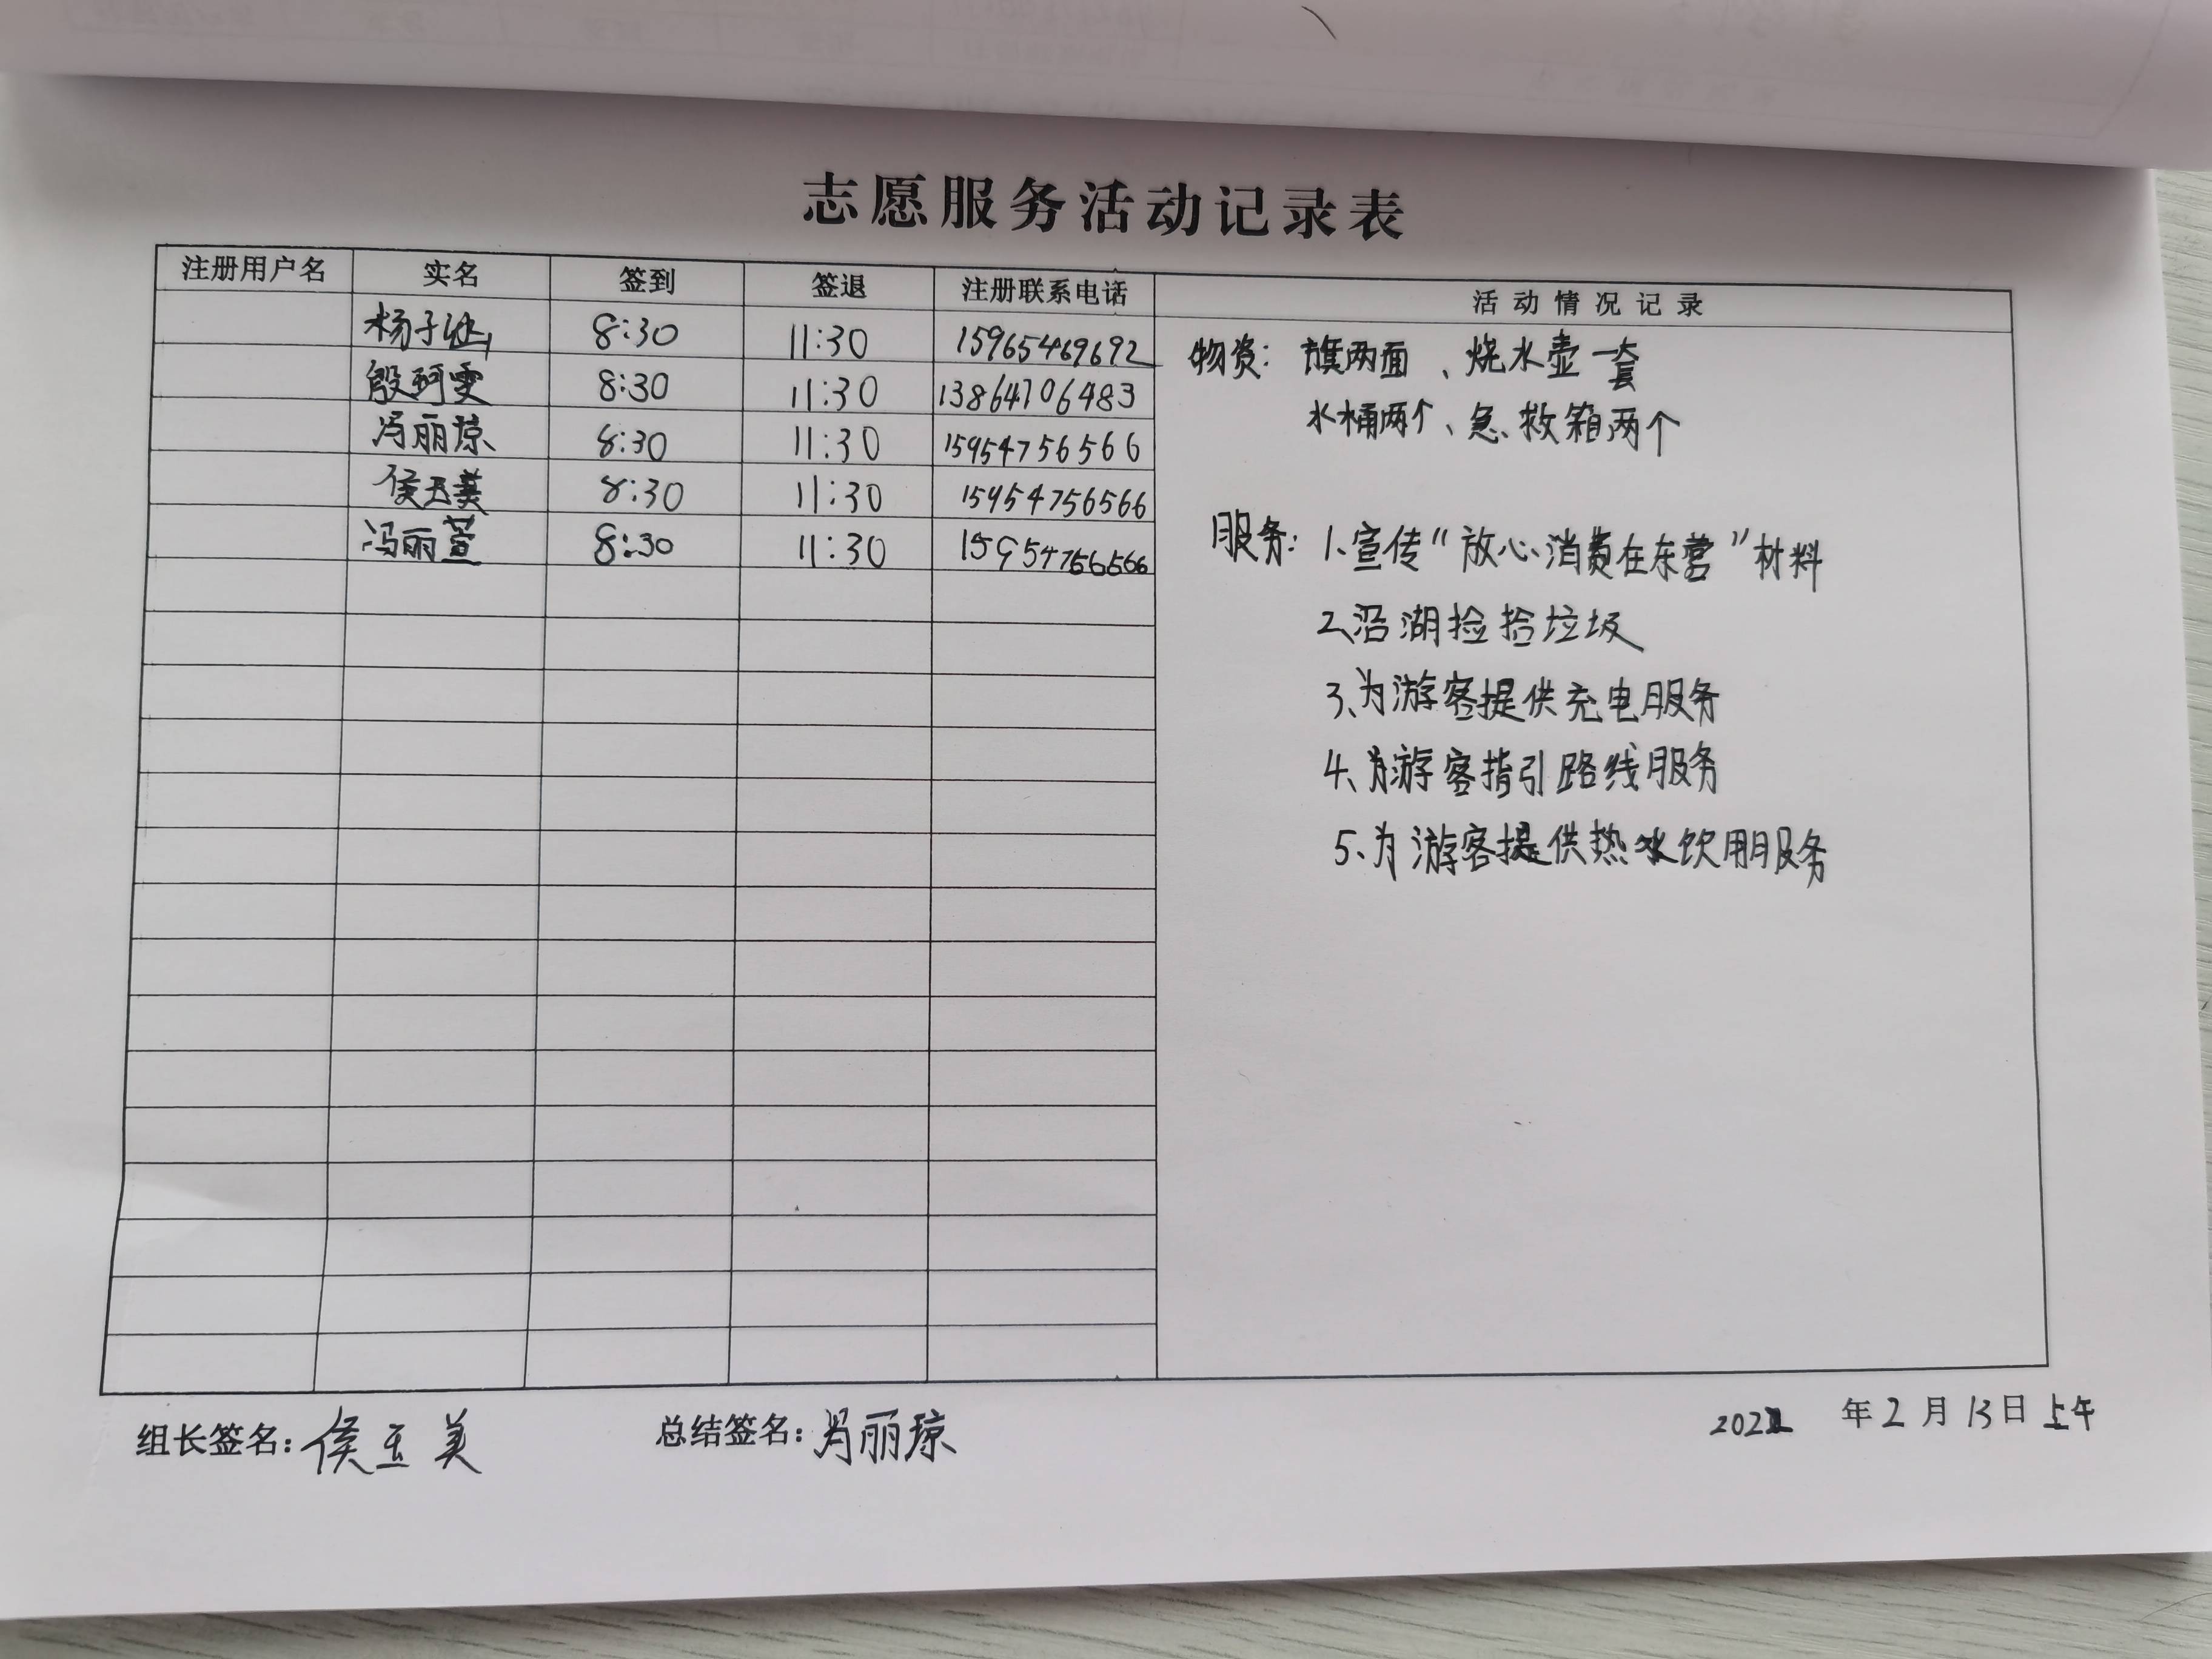 志愿服务活动记录表
注册用户名 实名 签到 签退 注册联系电话 活动情况记录
杨子 8:30 11:30 15965469692
殷珂雯 8:30 11:30 13864706483
冯丽琼 8:30 11:30 15954756566
侯玉美 8:30 11:30 15954756566
冯丽萱 8:30 11:30 15954756566
物资：旗两面、烧水壶一套
水桶两个、急救箱两个
服务：1、宣传“放心消费在东营”材料
2、沿湖捡拾垃圾
3、为游客提供充电服务
4、为游客指引路线服务
5、为游客提供热水饮用服务
组长签名：侯玉美 总结签名：冯丽琼 2022 年2月13日上午